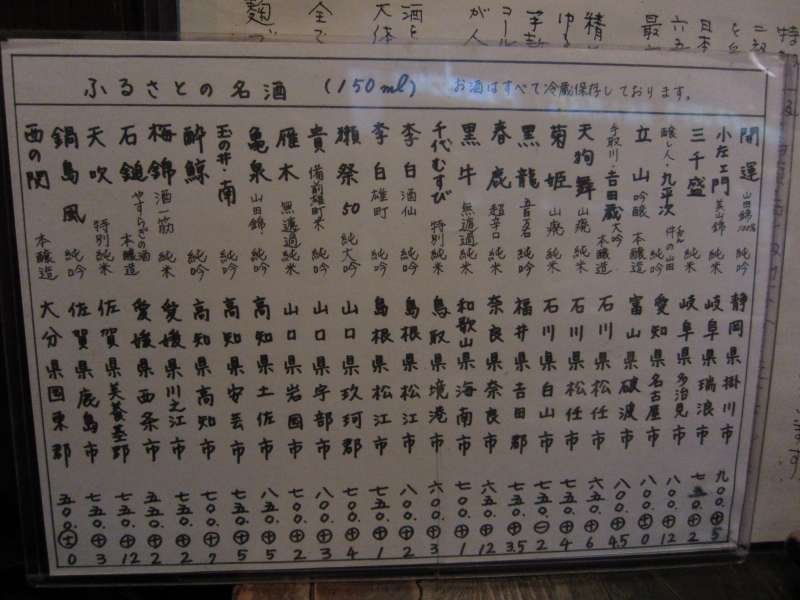 ふるさとの名酒 (150ml) お酒はすべて冷蔵保存しております。
開運 山田錦100% 純吟 静岡県掛川市 九〇〇. ㊉ 5
小左エ門 美山錦 純米 岐阜県瑞浪市 七五〇. ㊉ 2
三千盛 純米 岐阜県多治見市 八〇〇. ㊉ 12
醸し人・九平次 件の山田 純吟 愛知県名古屋市 八〇〇. ㊏ 0
立山 吟醸 本醸造 富山県砺波市 八〇〇. ㊉ 4.5
手取川・吉田蔵 大吟 本醸造 石川県松任市 六五〇. ㊉ 6
天狗舞 山廃 純米 石川県松任市 七五〇. ㊉ 4
菊姫 山廃 純米 石川県白山市 七五〇. ㊀ 2
黒龍 吾百万石 純吟 福井県吉田郡 八〇〇. ㊉ 3.5
春鹿 超辛口 純米 奈良県奈良市 六五〇. ㊉ 12
黒牛 無濾過 純米 和歌山県海南市 七〇〇. ㊉ 1
千代むすび 特別 純米 鳥取県境港市 六〇〇. ㊉ 3
李白 酒仙 純吟 島根県松江市 八〇〇. ㊉ 2
李白 雄町 純吟 島根県松江市 七五〇. ㊉ 1
獺祭 50 純大吟 山口県玖珂郡 七〇〇. ㊉ 4
貴 備前雄町米 純吟 山口県宇部市 八〇〇. ㊉ 3
雁木 無濾過 純米 山口県岩国市 七〇〇. ㊉ 2
亀泉 山田錦 純吟 高知県土佐市 八五〇. ㊉ 5
玉の井・南 純吟 高知県安芸市 七五〇. ㊉ 5
酔鯨 純吟 高知県高知市 七〇〇. ㊉ 7
梅錦 酒一筋 純米 愛媛県川之江市 七五〇. ㊉ 2
石鎚 やすらぎの酒 本醸造 愛媛県西条市 五五〇. ㊉ 2
天吹 特別 純米 佐賀県三養基郡 七五〇. ㊉ 12
鍋島 風 純吟 佐賀県鹿島市 七五〇. ㊉ 3
西の関 本醸造 大分県国東郡 五〇〇. 0